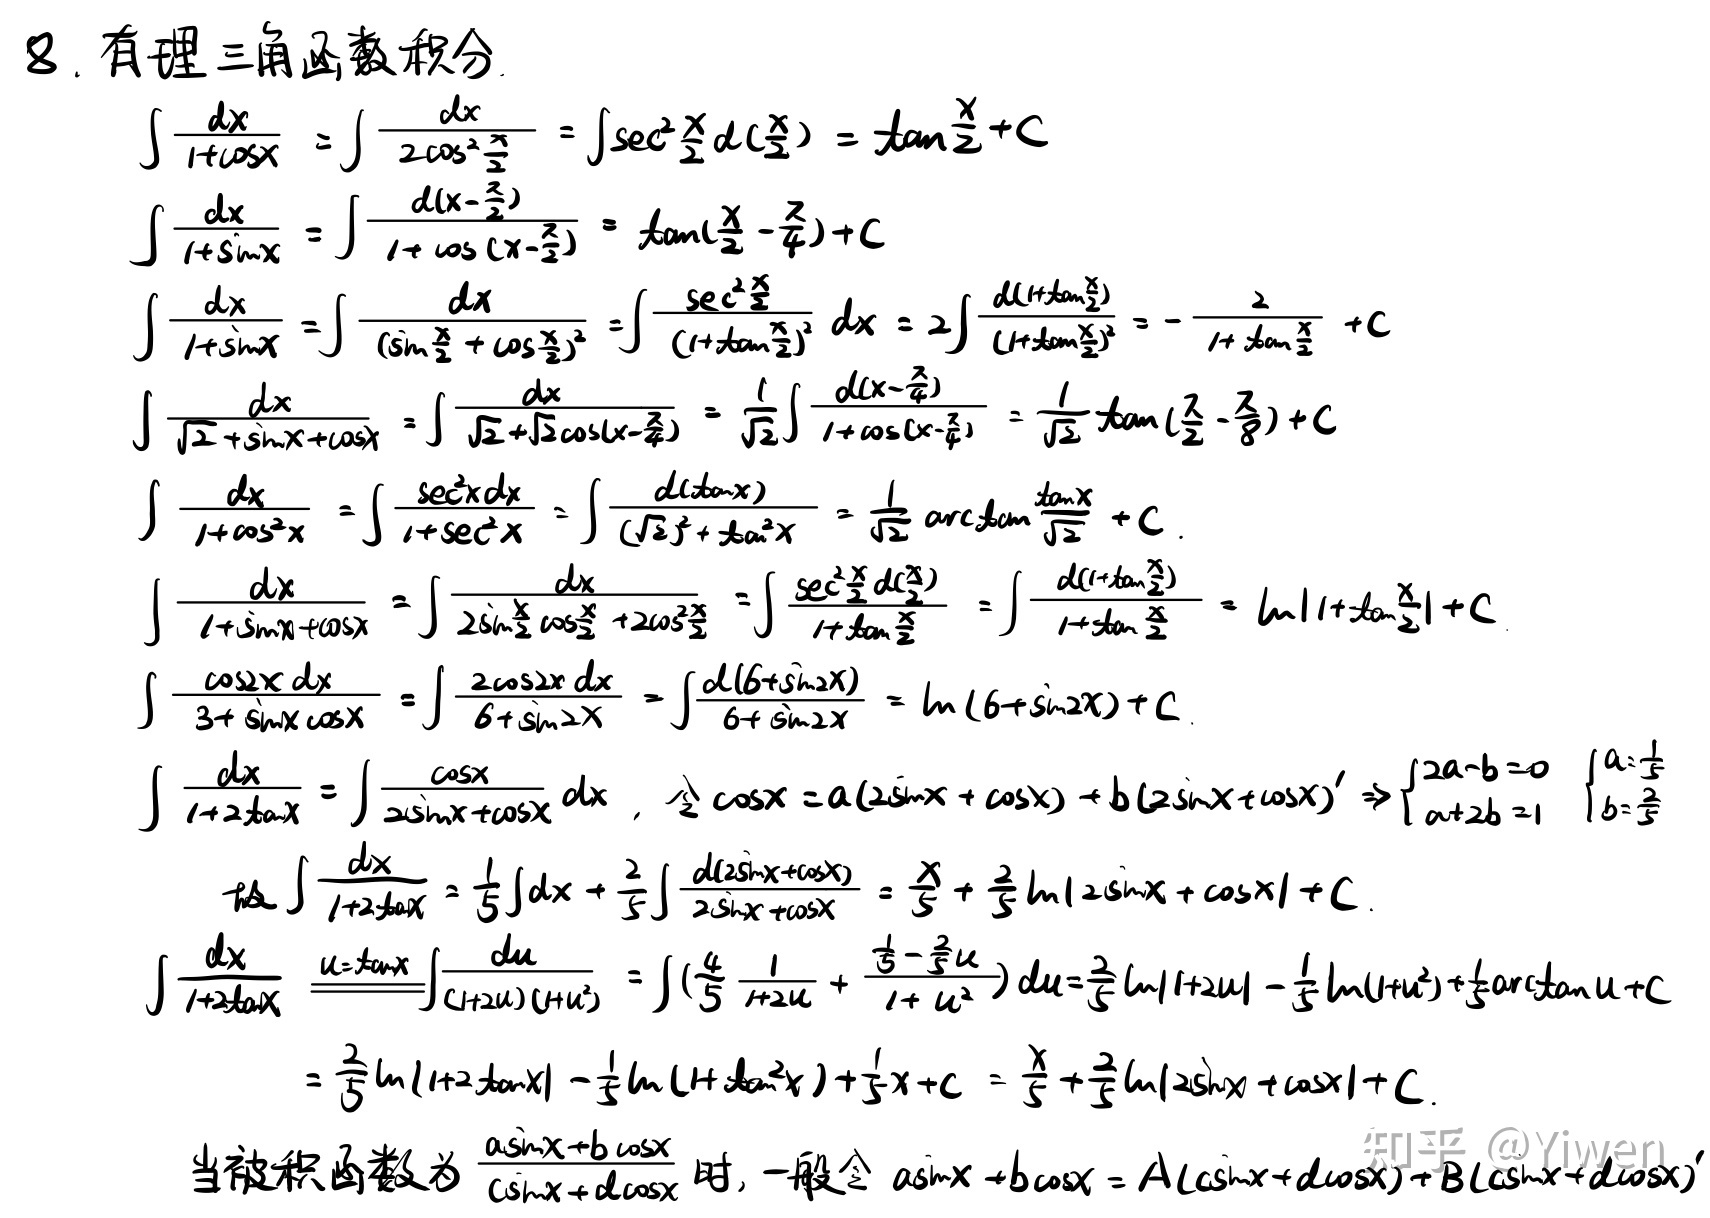 8. 有理三角函数积分.
∫ dx/(1+cosx) = ∫ dx/(2cos² x/2) = ∫sec² x/2 d(x/2) = tan x/2 + C
∫ dx/(1+sinx) = ∫ d(x-π/2)/(1+cos(x-π/2)) = tan(x/2 - π/4) + C
∫ dx/(1+sinx) = ∫ dx/(sin x/2 + cos x/2)² = ∫ sec² x/2/(1+tan x/2)² dx = 2∫ d(1+tan x/2)/(1+tan x/2)² = - 2/(1+tan x/2) + C
∫ dx/(√2+sinx+cosx) = ∫ dx/(√2+√2cos(x-π/4)) = 1/√2 ∫ d(x-π/4)/(1+cos(x-π/4)) = 1/√2 tan(x/2 - π/8) + C
∫ dx/(1+cos²x) = ∫ sec²x dx/(1+sec²x) = ∫ d(tanx)/((√2)²+tan²x) = 1/√2 arctan tanx/√2 + C.
∫ dx/(1+sinx+cosx) = ∫ dx/(2sin x/2 cos x/2 + 2cos² x/2) = ∫ sec² x/2 d(x/2)/(1+tan x/2) = ∫ d(1+tan x/2)/(1+tan x/2) = ln|1+tan x/2| + C.
∫ cos2x dx/(3+sinx cosx) = ∫ 2cos2x dx/(6+sin2x) = ∫ d(6+sin2x)/(6+sin2x) = ln(6+sin2x) + C.
∫ dx/(1+2tanx) = ∫ cosx/(2sinx+cosx) dx , 令 cosx = a(2sinx+cosx) + b(2sinx+cosx)' ⇒ { 2a-b=0 a+2b=1 { a=1/5 b=2/5
故 ∫ dx/(1+2tanx) = 1/5 ∫dx + 2/5 ∫ d(2sinx+cosx)/(2sinx+cosx) = x/5 + 2/5 ln|2sinx+cosx| + C.
∫ dx/(1+2tanx) u=tanx ∫ du/((1+2u)(1+u²)) = ∫(4/5 1/(1+2u) + (1/5 - 2/5 u)/(1+u²)) du = 2/5 ln|1+2u| - 1/5 ln(1+u²) + 1/5 arctan u + C
= 2/5 ln|1+2tanx| - 1/5 ln(1+tan²x) + 1/5 x + C = x/5 + 2/5 ln|2sinx+cosx| + C.
当被积函数为 (asinx+bcosx)/(csinx+dcosx) 时, 一般令 asinx+bcosx = A(csinx+dcosx) + B(csinx+dcosx)'
知乎 @Yiwen